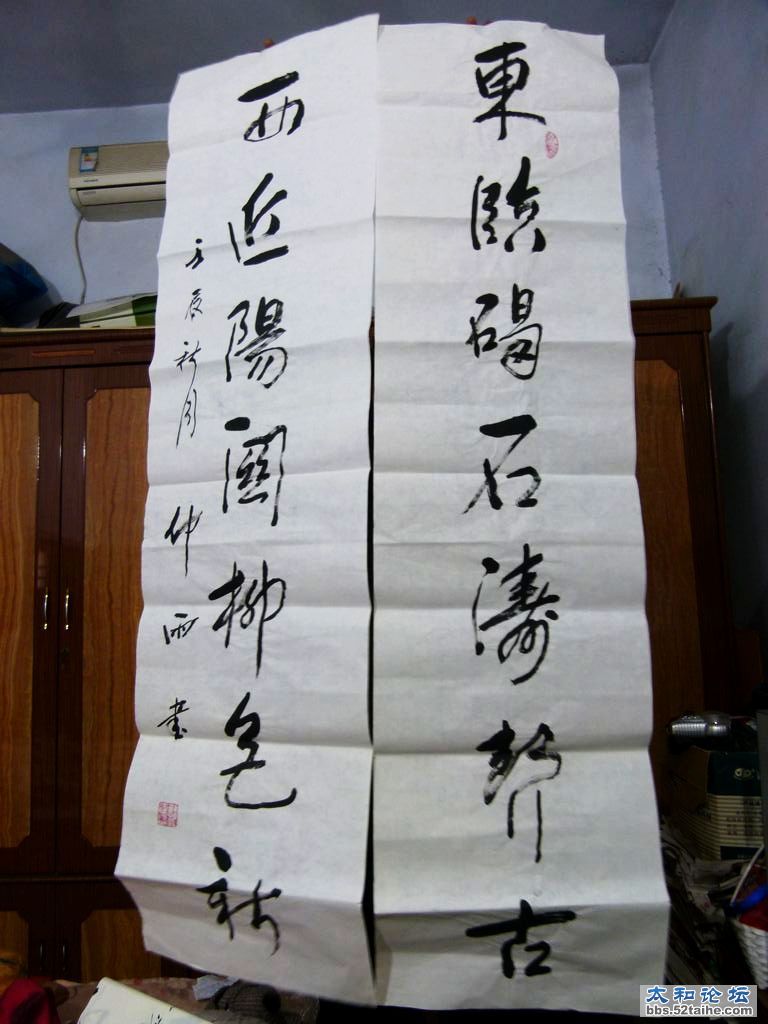 東臨碣石濤聲古
西近陽關柳色新
壬辰秋月 仲雨書
太和论坛
bbs.52taihe.com